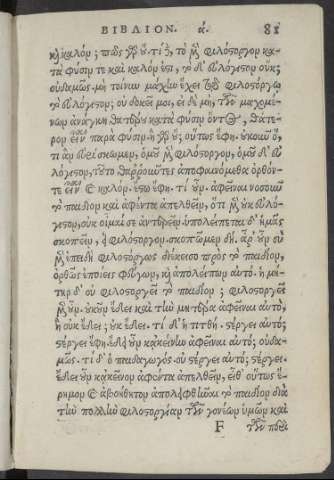 ΒΙΒΛΙΟΝ. α. 81
καὶ καλόν; πῶς γὰρ οὔ. τί οὖν; τὸ μὲν φιλόστοργον κα-
τὰ φύσιν τε καὶ καλόν ἐστι, τὸ δ' εὐλόγιστον οὐκ;
οὐδαμῶς. μὴ τοίνυν μάχην ἔχει τῷ φιλοστόργῳ
τὸ εὐλόγιστον; οὐ δοκεῖ μοι. εἰ δὲ μὴ, τῶν μαχομέ-
νων ἀνάγκη θατέρου κατὰ φύσιν ὄντος, θάτε-
ρον εἶναι παρὰ φύσιν. ἢ γὰρ οὔ; οὕτως ἔφη. οὐκοῦν ὅ,
τι ἂν εὑρίσκωμεν, ὁμοῦ μὲν φιλόστοργον, ὁμοῦ δ' εὐ
λόγιστον, τοῦτο θαῤῥοῦντες ἀποφαινόμεθα ὀρθόν-
τε εἶναι καὶ καλόν. ἔστω ἔφη. τί οὖν. ἀφεῖναι νοσοῦν
τὸ παιδίον καὶ ἀφέντα ἀπελθεῖν, ὅτι μὲν οὐκ εὐλό-
γιστον, οὐκ οἶμαί σε ἀντερεῖν. ὑπολείπεται δ' ἡμᾶς
σκοπεῖν, εἰ φιλόστοργον. σκοπῶμεν δή. ἆρ' οὖν σὺ
μὲν ἐπειδὴ φιλοστόργως διέκεισο πρὸς τὸ παιδίον,
ὀρθῶς ἐποίεις φεύγων, καὶ ἀπολείπων αὐτό. ἡ μή-
τηρ δ' οὐ φιλοστοργεῖ τὸ παιδίον; φιλοστοργεῖ
μὲν οὖν. οὐκοῦν ἔδει καὶ τὴν μητέρα ἀφεῖναι αὐτὸ,
ἢ οὐκ ἔδει; οὐκ ἔδει. τί δ' ἡ τιτθή. στέργει αὐτό;
στέργει ἔφη. ἔδει οὖν κἀκείνην ἀφεῖναι αὐτό; οὐδα-
μῶς. τί δ' ὁ παιδαγωγός. οὐ στέργει αὐτό; στέργει.
ἔδει οὖν κἀκεῖνον ἀφέντα ἀπελθεῖν, εἶθ' οὕτως ἔ-
ρημον καὶ ἀβοήθητον ἀπολειφθῆναι τὸ παιδίον διὰ
τὴν πολλὴν φιλοστοργίαν τῶν γονέων ὑμῶν καὶ
F τῶν περὶ